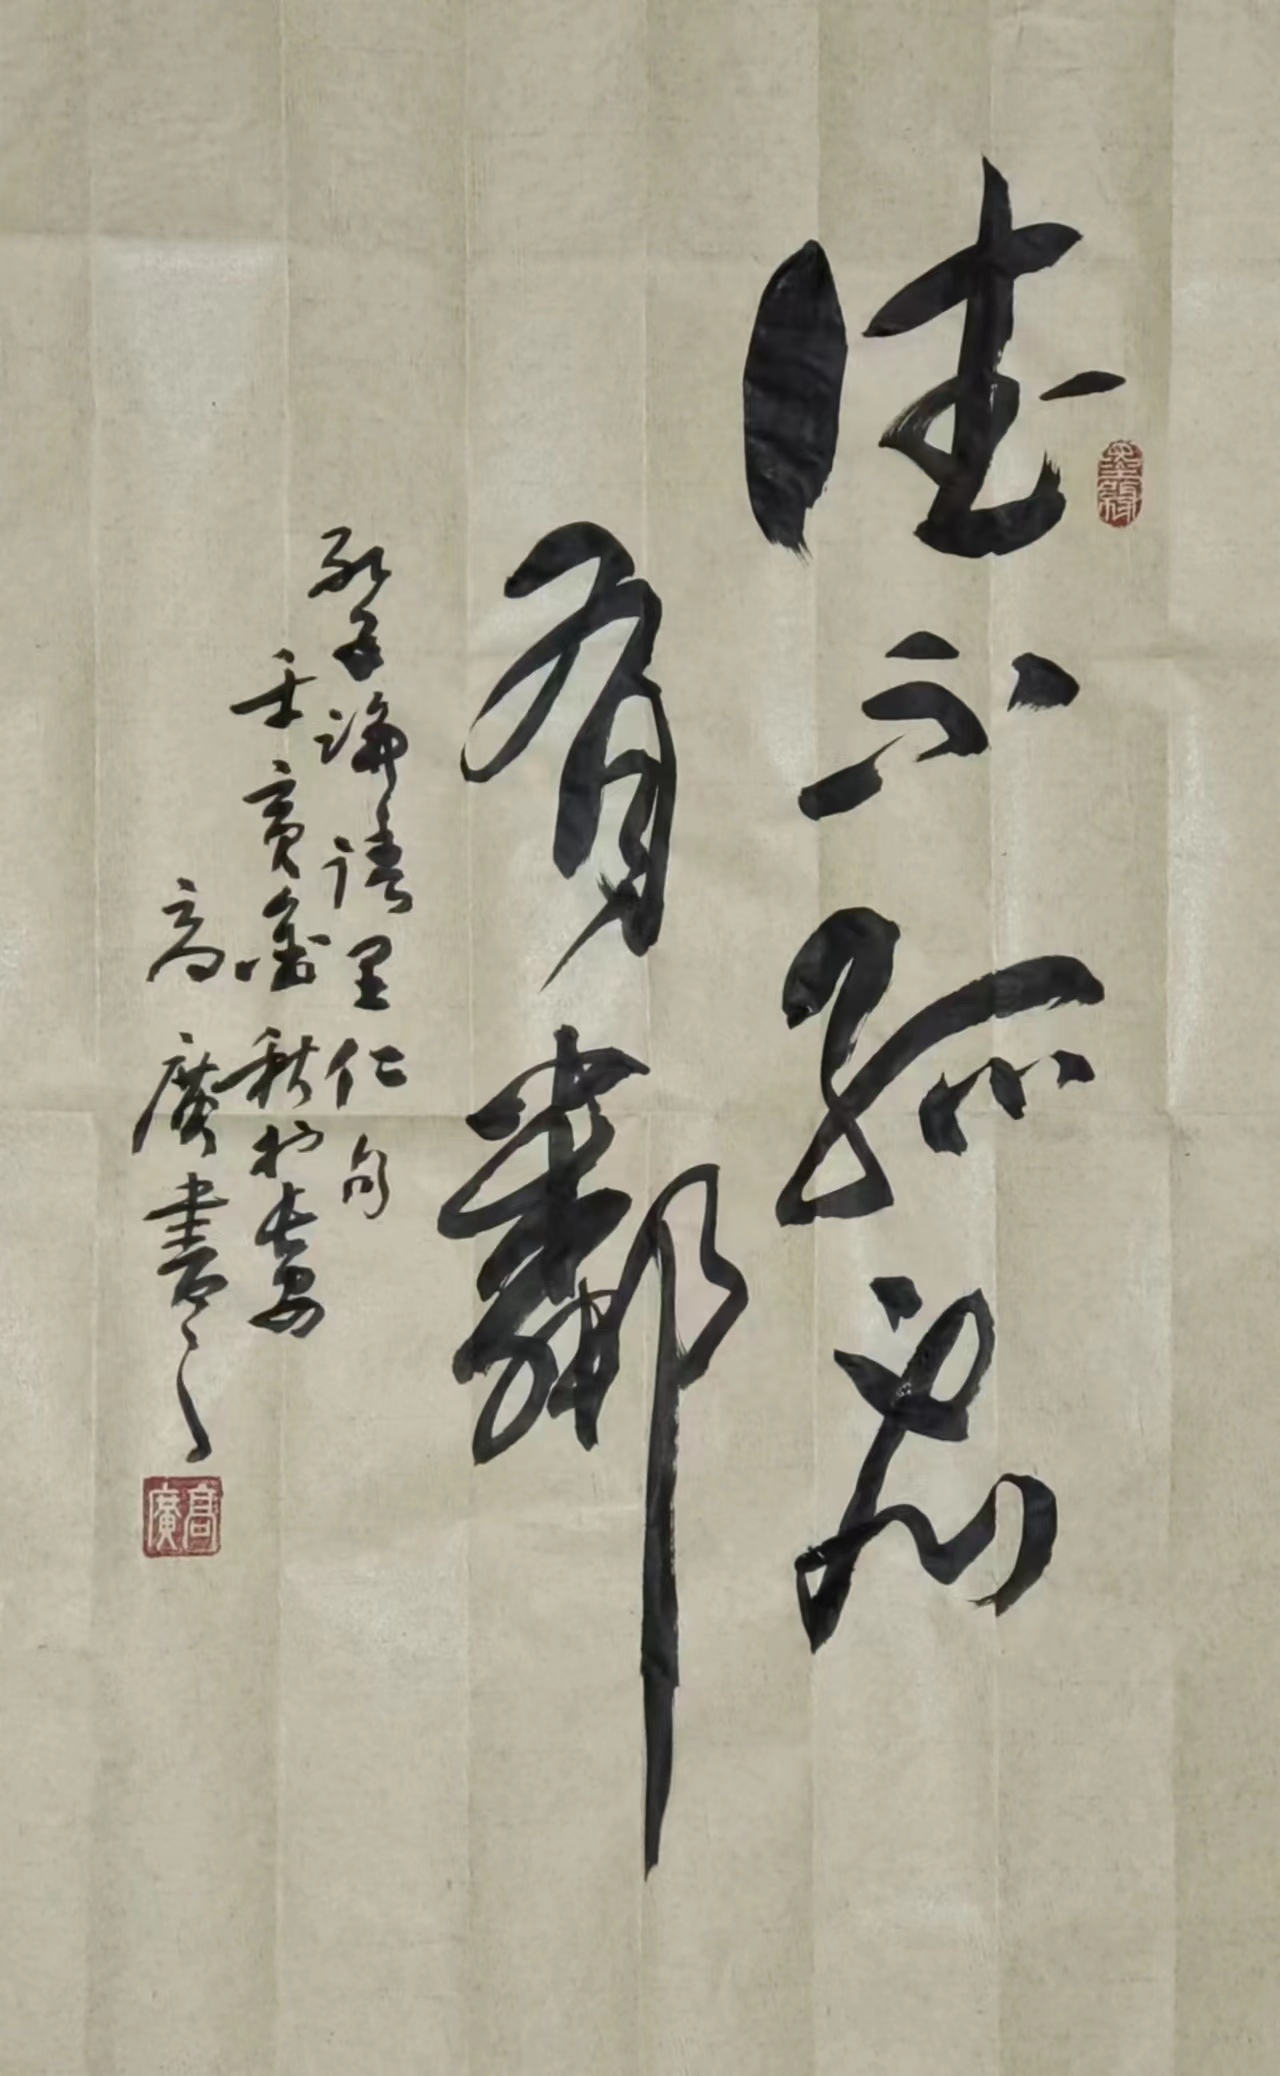 德不孤必
有鄰
孔子論語里仁句
壬寅金秋於長安
高廣書
高廣
墨緣